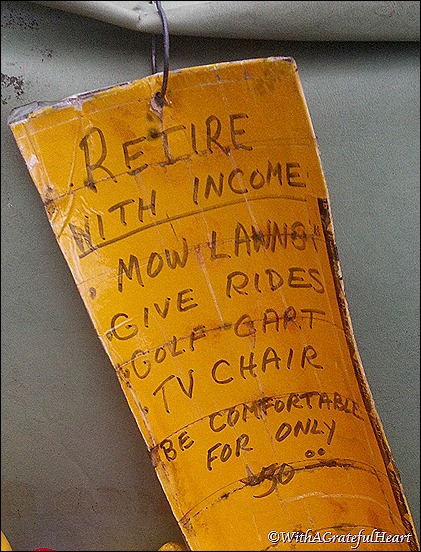 RETIRE
WITH INCOME
• MOW LAWNS
• GIVE RIDES
• GOLF CART
• TV CHAIR
BE COMFORTABLE
FOR ONLY
©WithAGratefulHeart